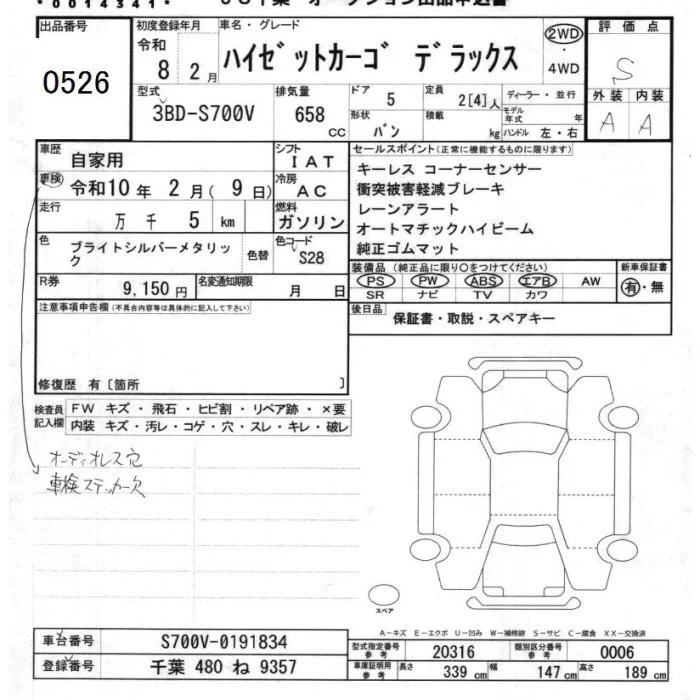 *0014341*
出品番号
0526
初度登録年月
令和
8 2月
車名・グレード
ハイゼットカーゴ デラックス
2WD
4WD
評価点
S
外装 内装
A A
型式
3BD-S700V
排気量
658 CC
ドア 5
形状 バン
定員 2[4]人
積載 kg
ディーラー・並行
モデル年式 年
ハンドル 左・右
車歴
自家用
車検 令和10年 2月( 9日)
走行
万 千 5 km
色
ブライトシルバーメタリック
色替
色コード
S28
シフト
IAT
冷房
AC
燃料
ガソリン
R券
9,150円
名変通知期限
月 日
注意事項申告欄(不具合内容等は具体的に記入して下さい)
修復歴 有〔箇所 〕
セールスポイント(正常に機能するものに限ります)
キーレス コーナーセンサー
衝突被害軽減ブレーキ
レーンアラート
オートマチックハイビーム
純正ゴムマット
装備品(純正品に限り○をつけてください)
PS PW ABS エアB AW
SR ナビ TV カワ
新車保証書
有・無
後日品
保証書・取説・スペアキー
検査員記入欄
FW キズ・飛石・ヒビ割・リペア跡・×要
内装 キズ・汚レ・コゲ・穴・スレ・キレ・破レ
オーディオレス穴
車検ステッカー欠
スペア
A-キズ E-エクボ U-凹み W-補修跡 S-サビ C-腐食 XX-交換済
車台番号
S700V-0191834
登録番号
千葉 480 ね 9357
型式指定番号 参考
20316
類別区分番号 参考
0006
車庫証明用 参考
長さ 339 cm 幅 147 cm 高さ 189 cm